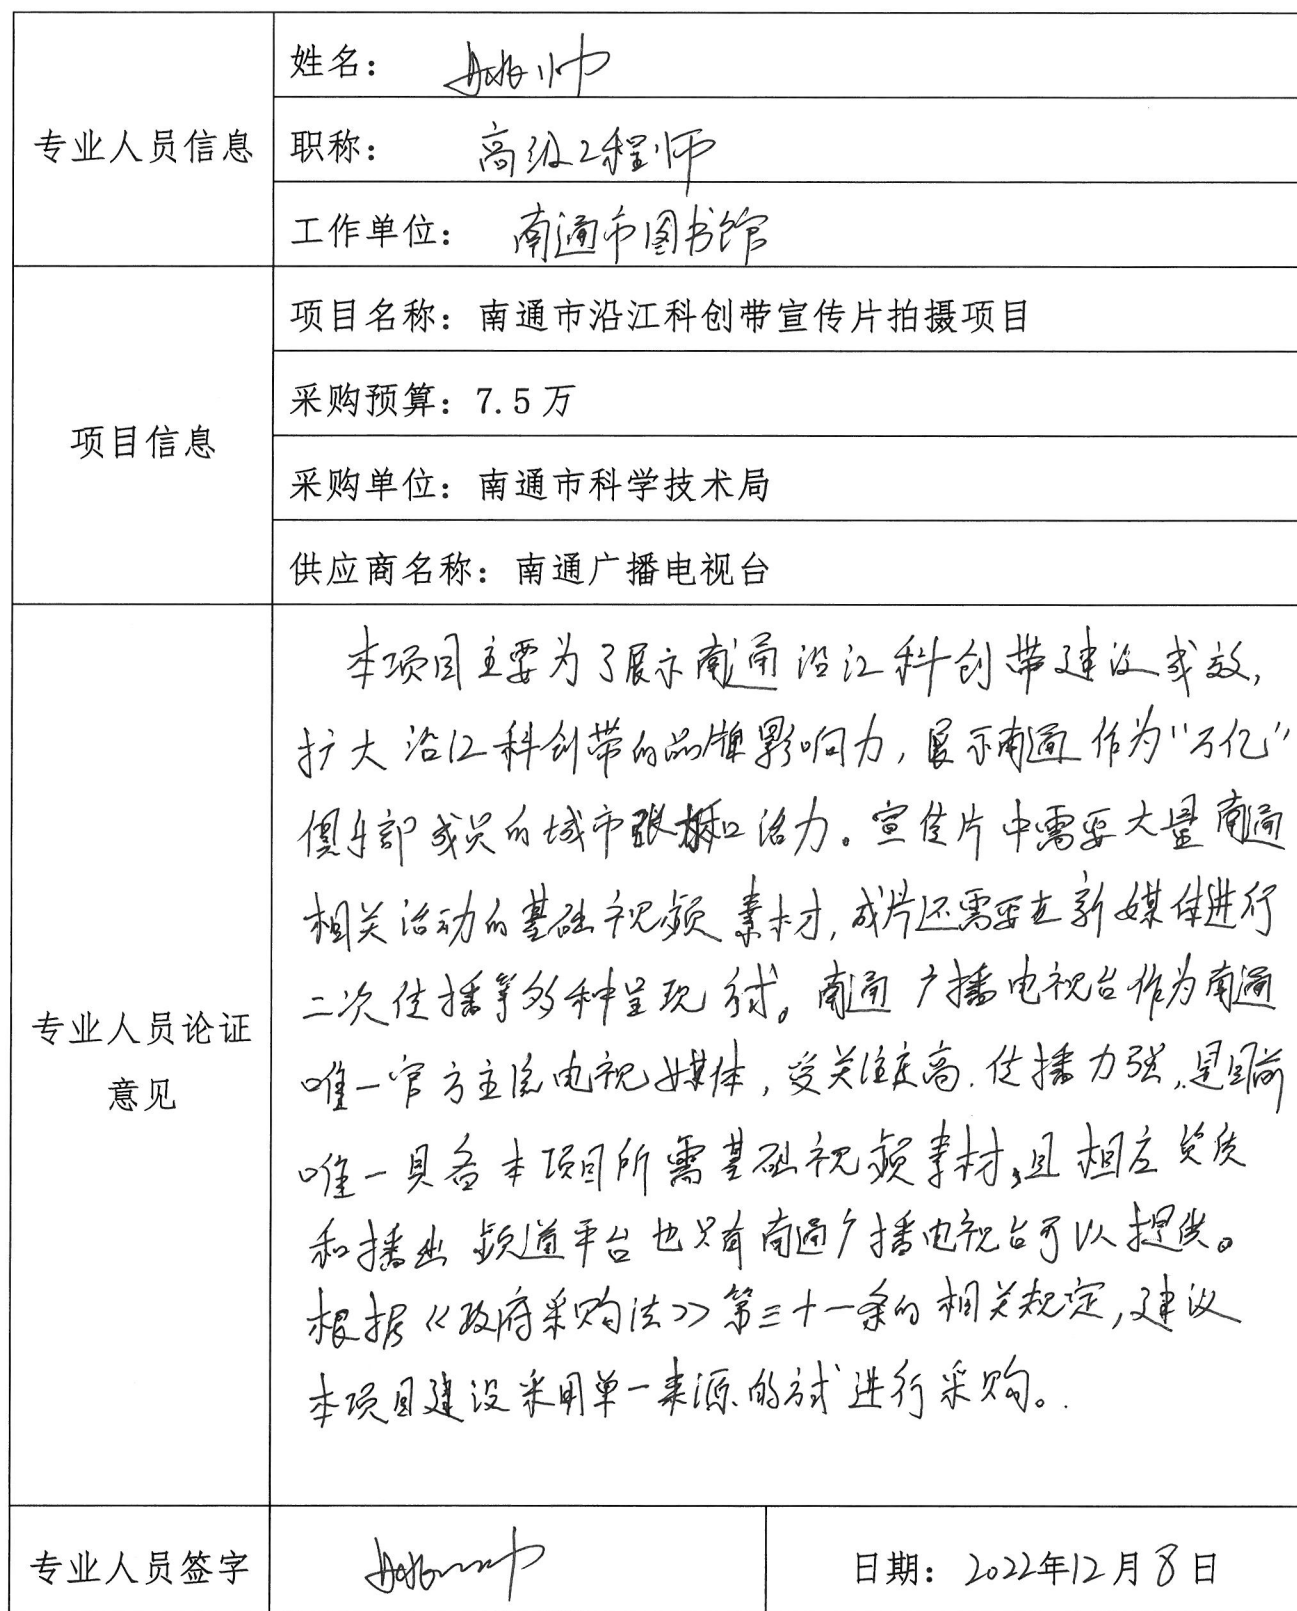 专业人员信息
姓名：
职称：高级工程师
工作单位：南通市图书馆
项目信息
项目名称：南通市沿江科创带宣传片拍摄项目
采购预算：7.5万
采购单位：南通市科学技术局
供应商名称：南通广播电视台
专业人员论证
意见
本项目主要为了展示南通沿江科创带建设成效，
扩大沿江科创带的品牌影响力，展示南通作为“万亿”
俱乐部成员的城市张力和活力。宣传片中需要大量南通
相关活动的基础视频素材，成片还需要在新媒体进行
二次传播等多种呈现方式。南通广播电视台作为南通
唯一官方主流电视媒体，受关注度高.传播力强，是目前
唯一具备本项目所需基础视频素材，且相应资质
和播出频道平台也只有南通广播电视台可以提供。
根据《政府采购法》第三十一条的相关规定，建议
本项目建设采用单一来源的方式进行采购。
专业人员签字
日期：2022年12月8日